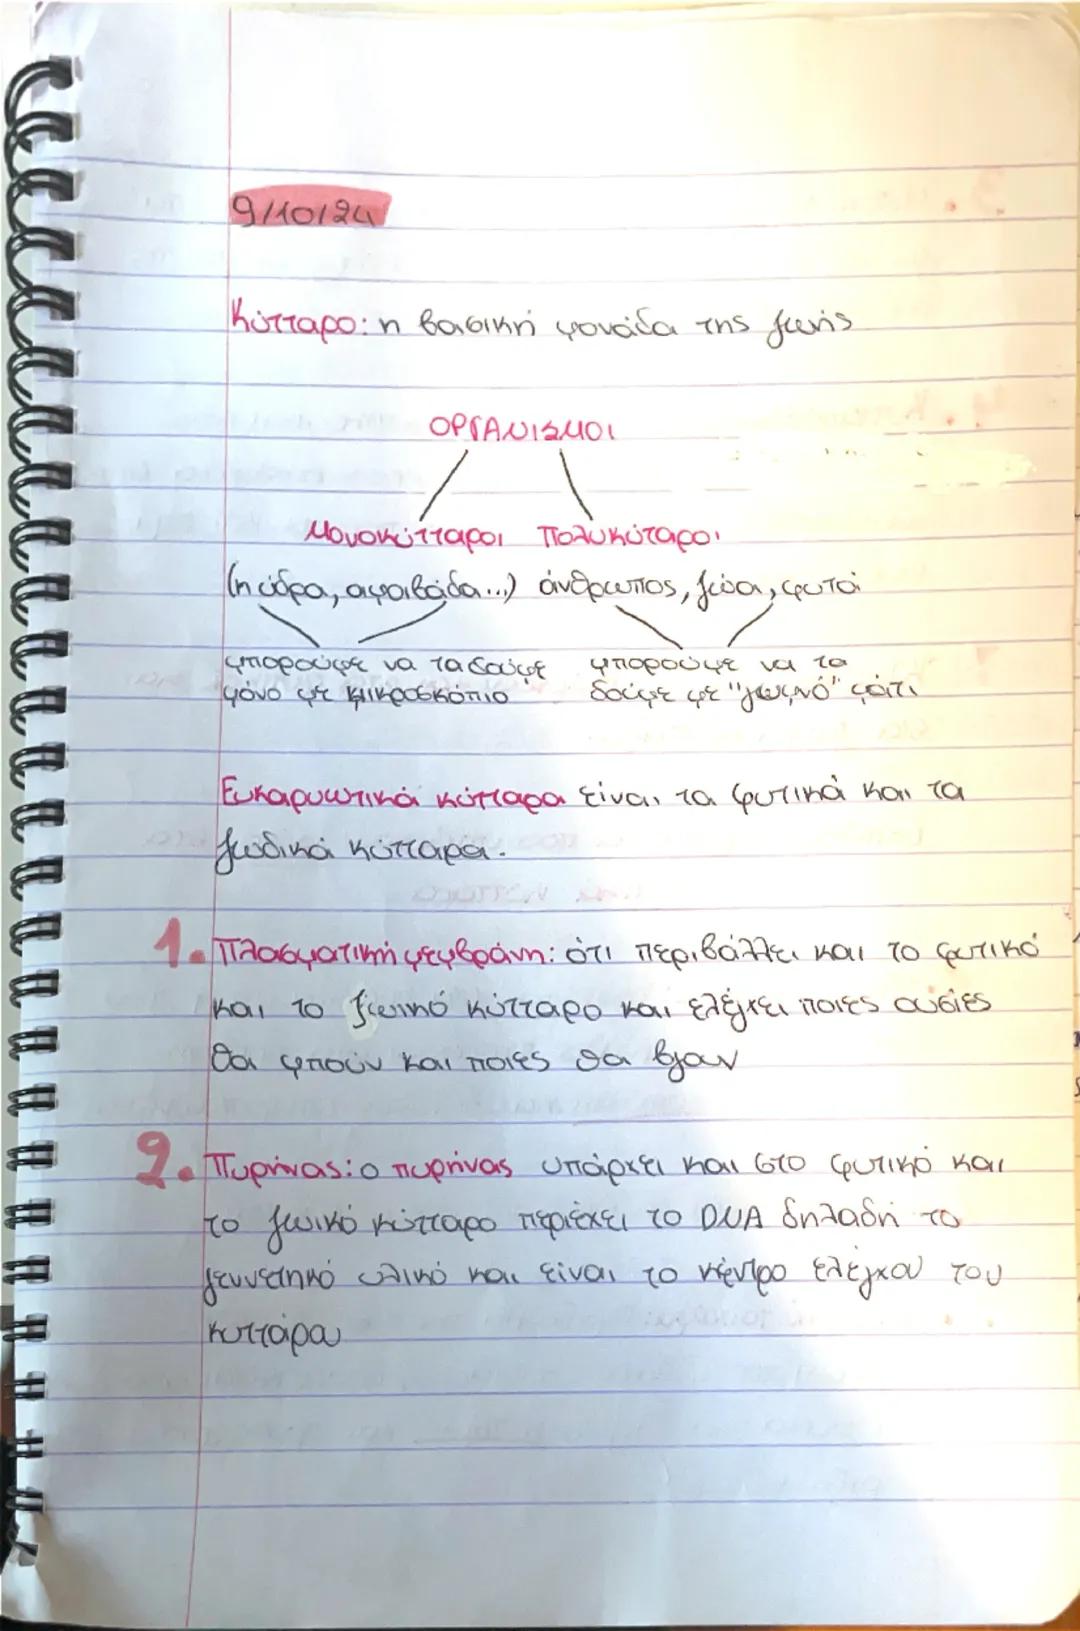 9/10/24
Κύτταρο: η βασική μονάδα της ζωής
ΟΡΓΑΝΙΣΜΟΙ
Μονοκύτταροι Πολυκύταροι
(η ύδρα, αμοιβάδα...) άνθρωπος, ζώα, φυτά
μπορούμε να τα δούμε μπορούμε να τα
μόνο με μικροσκόπιο δούμε με "γυμνό" μάτι
Ευκαρυωτικά κύτταρα είναι τα φυτικά και τα
ζωδικά κύτταρα.
1. Πλασματική μεμβράνη: ότι περιβάλλει και το φυτικό
και το ζωικό κύτταρο και ελέγχει ποιες ουσίες
θα μπούν και ποιες θα βγαν
2. Πυρήνας: ο πυρήνας υπάρχει και στο φυτικό και
το ζωικό κύτταρο περιέχει το DNA δηλαδή το
γεννετηκό υλικό και είναι το κέντρο ελέγχου του
κυττάρα